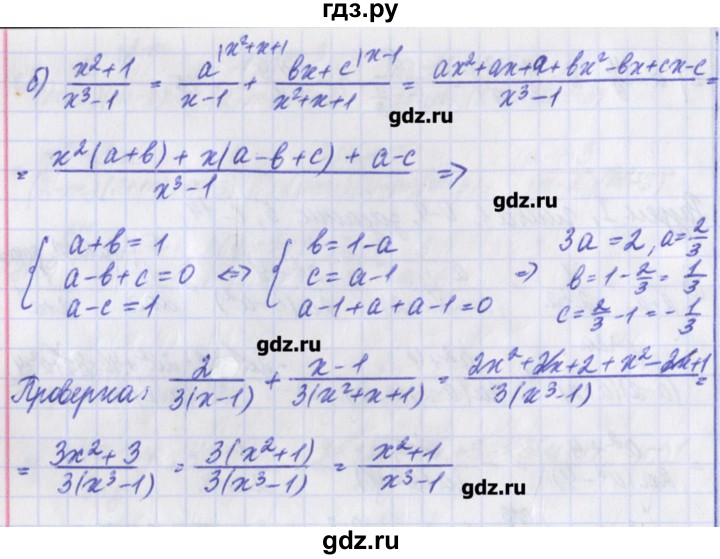 гдз.ру
б) (x²+1)/(x³-1) = a^{|x²+x+1}/(x-1) + (bx+c)^{|x-1}/(x²+x+1) = (ax²+ax+a+bx²-bx+cx-c)/(x³-1) =
gdz.ru
= (x²(a+b)+x(a-b+c)+a-c)/(x³-1) =>
gdz.ru
{ a+b=1 { b=1-a 3a=2, a=2/3
{ a-b+c=0 <=> { c=a-1 => b=1-2/3=1/3
{ a-c=1 { a-1+a+a-1=0 c=2/3-1=-1/3
gdz.ru
Проверка: 2/(3(x-1)) + (x-1)/(3(x²+x+1)) = (2x²+2x+2+x²-2x+1)/(3(x³-1)) =
= (3x²+3)/(3(x³-1)) = (3(x²+1))/(3(x³-1)) = (x²+1)/(x³-1)
gdz.ru